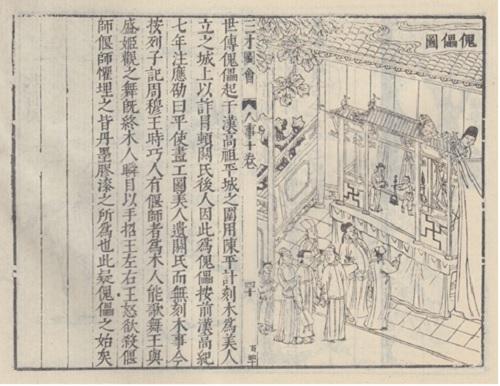 傀儡圖
三才圖會
人事十卷
四十
世傳傀儡起于漢高祖平城之圍用陳平計刻木爲美人
立之城上以詐冒頓閼氏後人因此爲傀儡按前漢高紀
七年注應劭曰平使畫工圖美人遺閼氏而無刻木事今
按列子記周穆王時巧人有偃師者爲木人能歌舞王與
盛姬觀之舞既終木人瞬目以手招王左右王怒欲殺偃
師偃師懼埋之皆丹墨膠漆之所爲也此疑傀儡之始矣